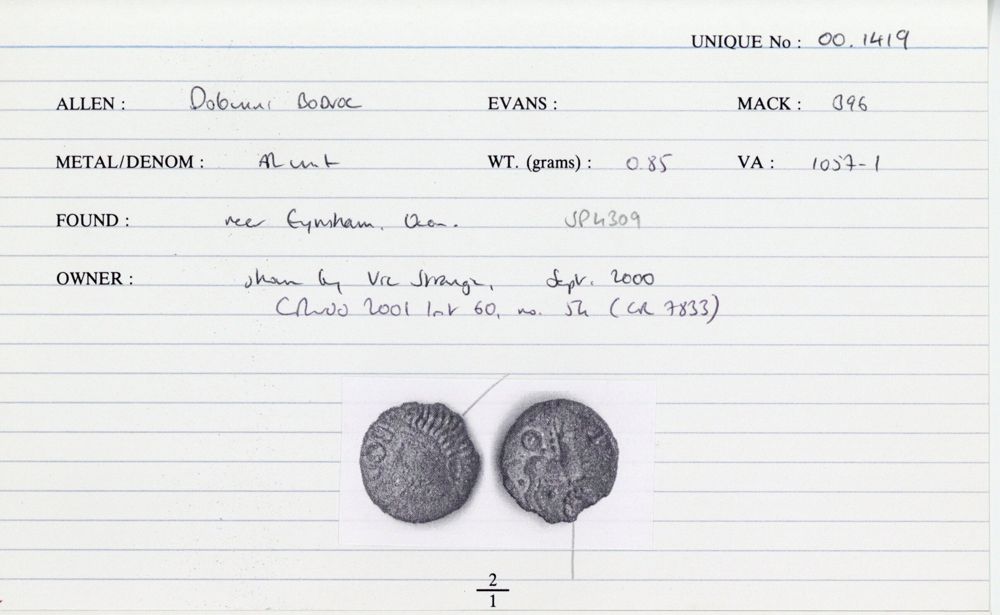 UNIQUE No : 00.1419
ALLEN : Dobunni BODVOC EVANS : MACK : 396
METAL/DENOM : AR unit WT. (grams) : 0.85 VA : 1057-1
FOUND : near Eynsham, Oxon. SP4309
OWNER : shown by Vic Strange, Sept. 2000
2001 list 60, no. 54 (CR 7833)
2
1